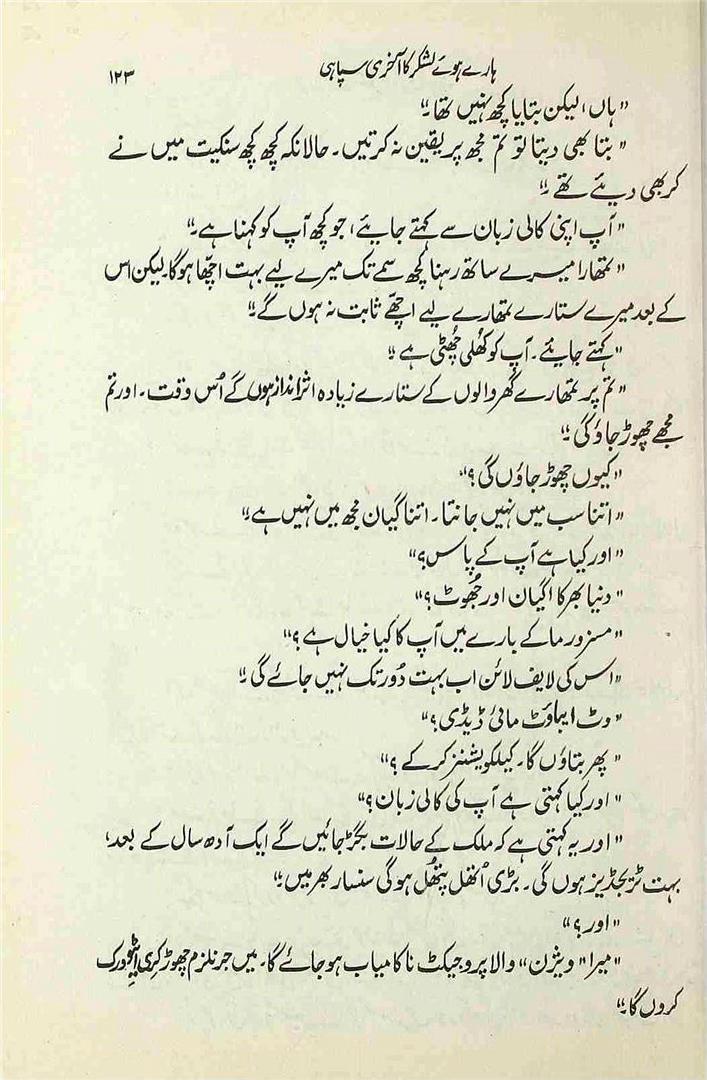 ہارے ہوئے لشکر کا آخری سپاہی
۱۲۳
"ہاں، لیکن بتایا کچھ نہیں تھا۔"
"بتا بھی دیتا تو تم مجھ پر یقین نہ کرتیں۔ حالانکہ کچھ کچھ سنکیت میں نے
کر بھی دیئے تھے۔"
"آپ اپنی کالی زبان سے کہتے جایئے، جو کچھ آپ کو کہنا ہے۔"
"تمھارا میرے ساتھ رہنا کچھ سمے تک میرے لیے بہت اچھّا ہوگا۔ لیکن اس
کے بعد میرے ستارے تمھارے لیے اچھّے ثابت نہ ہوں گے۔"
"کہتے جایئے۔ آپ کو کھُلی چھُٹی ہے۔"
"تم پر تمھارے گھر والوں کے ستارے زیادہ اثر انداز ہوں گے اُس وقت۔ اور تم
مجھے چھوڑ جاؤ گی۔"
"کیوں چھوڑ جاؤں گی؟"
"اتنا سب میں نہیں جانتا۔ اتنا گیان مجھ میں نہیں ہے۔"
"اور کیا ہے آپ کے پاس؟"
"دنیا بھر کا اگیان اور جھُوٹ؟"
"مسز ورما کے بارے میں آپ کا کیا خیال ہے؟"
"اس کی لایف لائن اب بہت دُور تک نہیں جائے گی۔"
"وٹ اباؤٹ مائی ڈیڈی؟"
"پھر بتاؤں گا۔ کیلکویشنز کرکے؟"
"اور کیا کہتی ہے آپ کی کالی زبان؟"
"اور یہ کہتی ہے کہ ملک کے حالات بگڑ جائیں گے ایک آدھ سال کے بعد،
بہت ٹریجڈیز ہوں گی۔ بڑی اُتھل پتھُل ہوگی سنسار بھر میں۔"
"اور؟"
"میرا "ویژن" والا پروجیکٹ ناکامیاب ہو جائے گا۔ میں جرنلزم چھوڑ کری ایٹیو ورک
کروں گا۔"